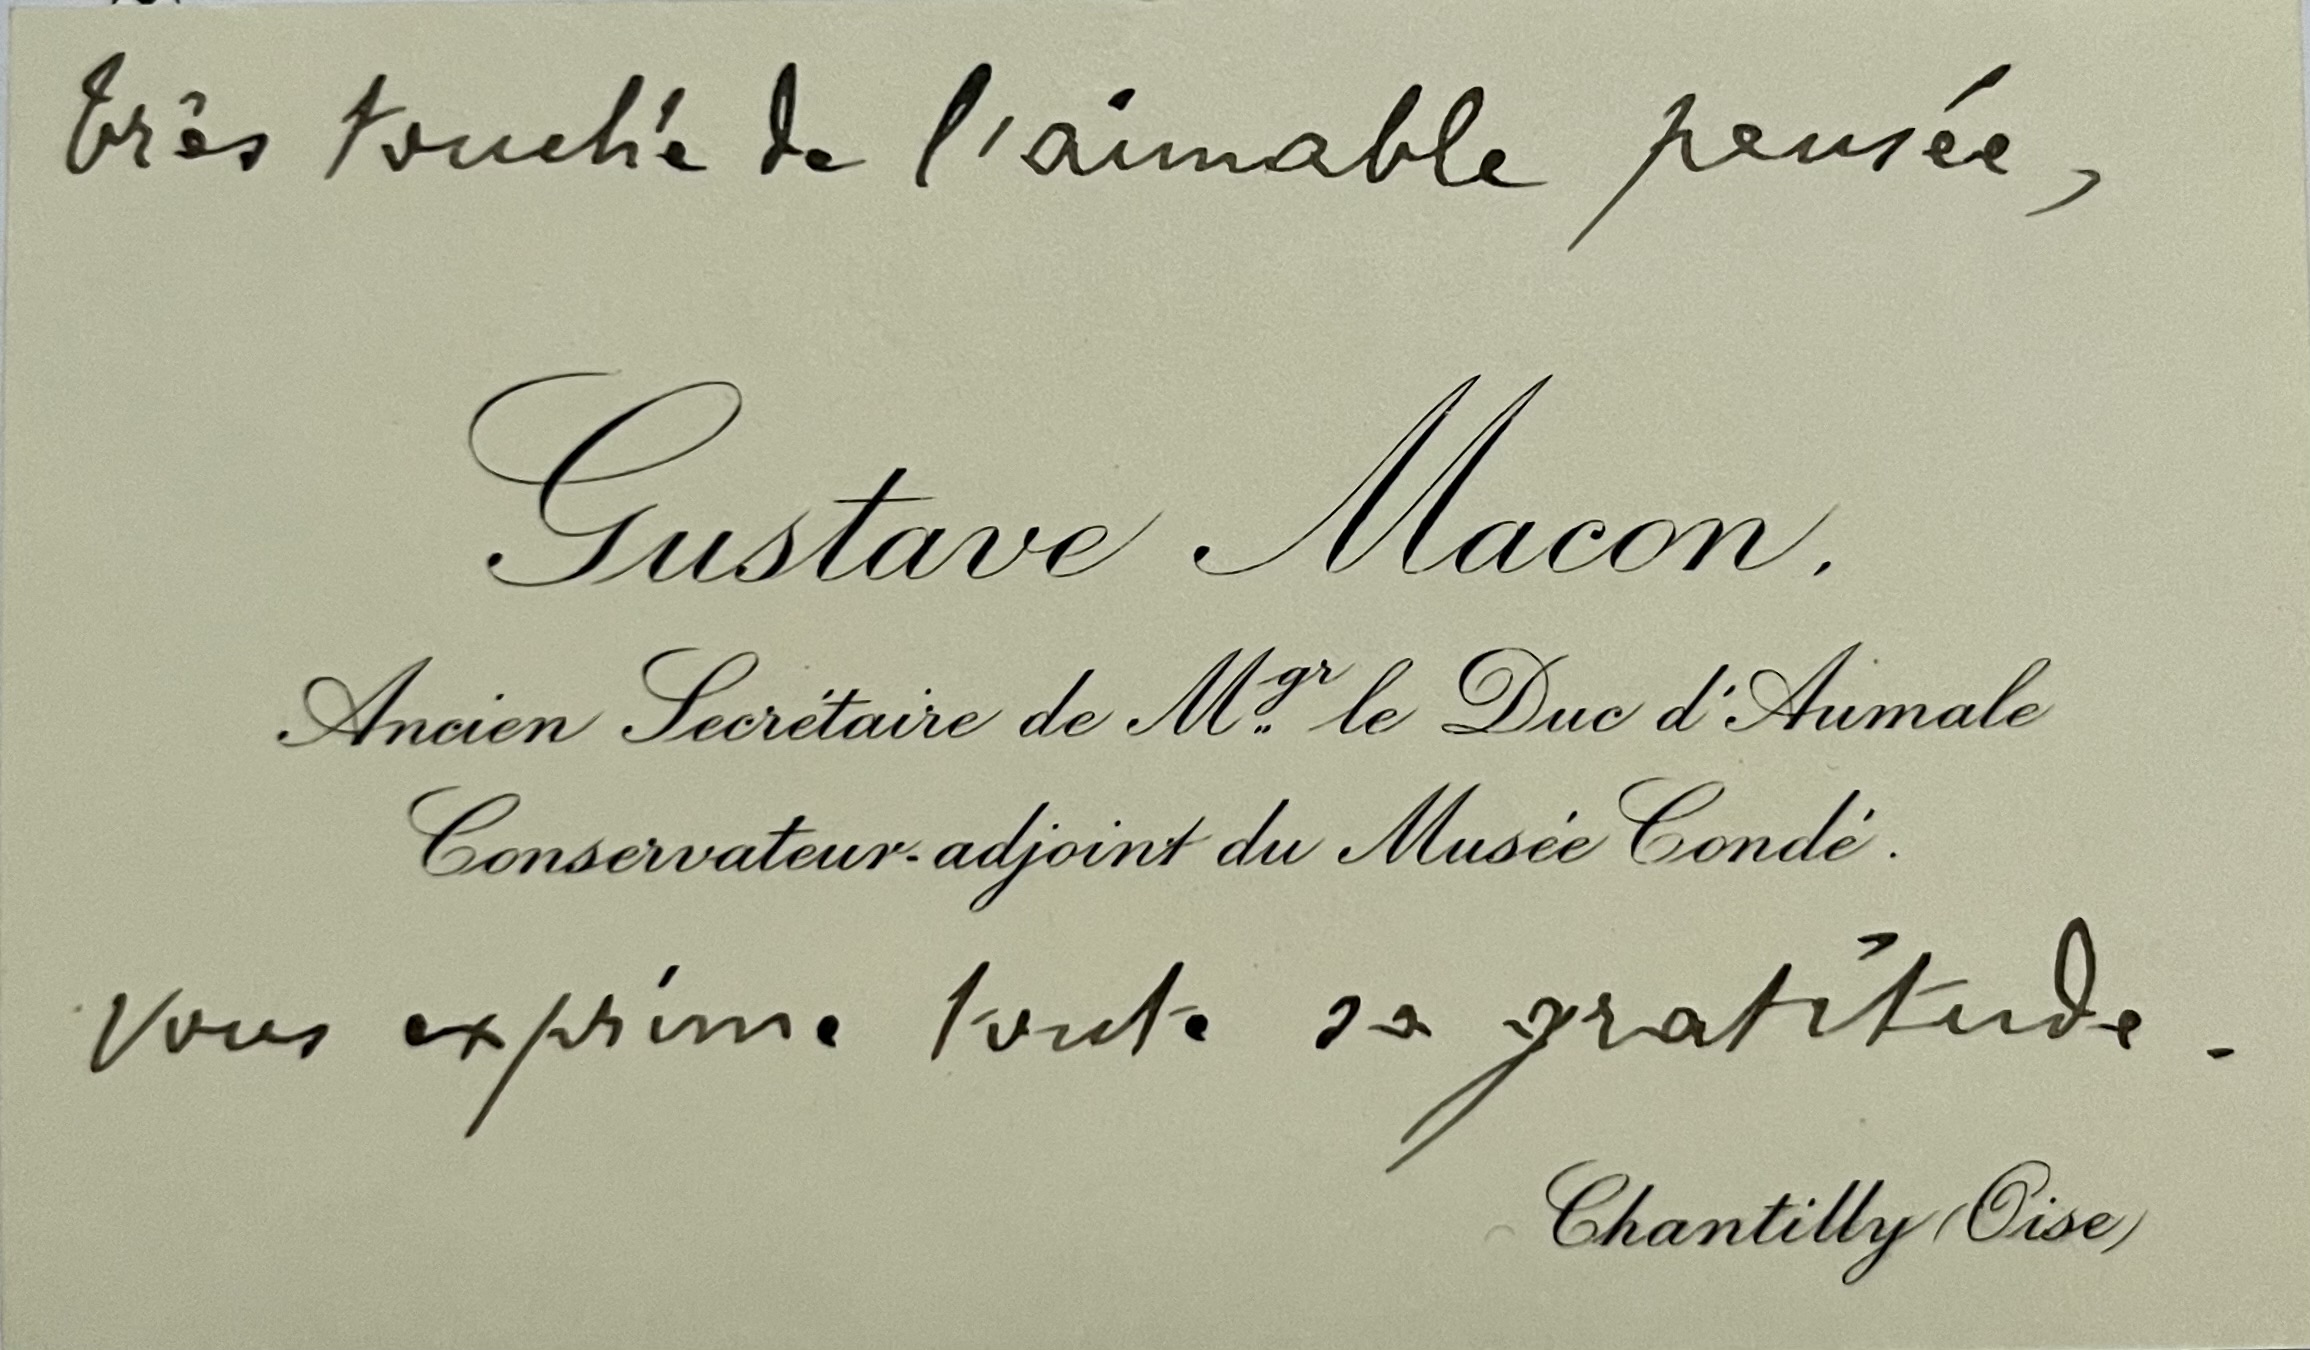 très touché de l'aimable pensée,
Gustave Macon.
Ancien Secrétaire de Mgr le Duc d'Aumale
Conservateur-adjoint du Musée Condé.
vous exprime toute sa gratitude.
Chantilly (Oise)